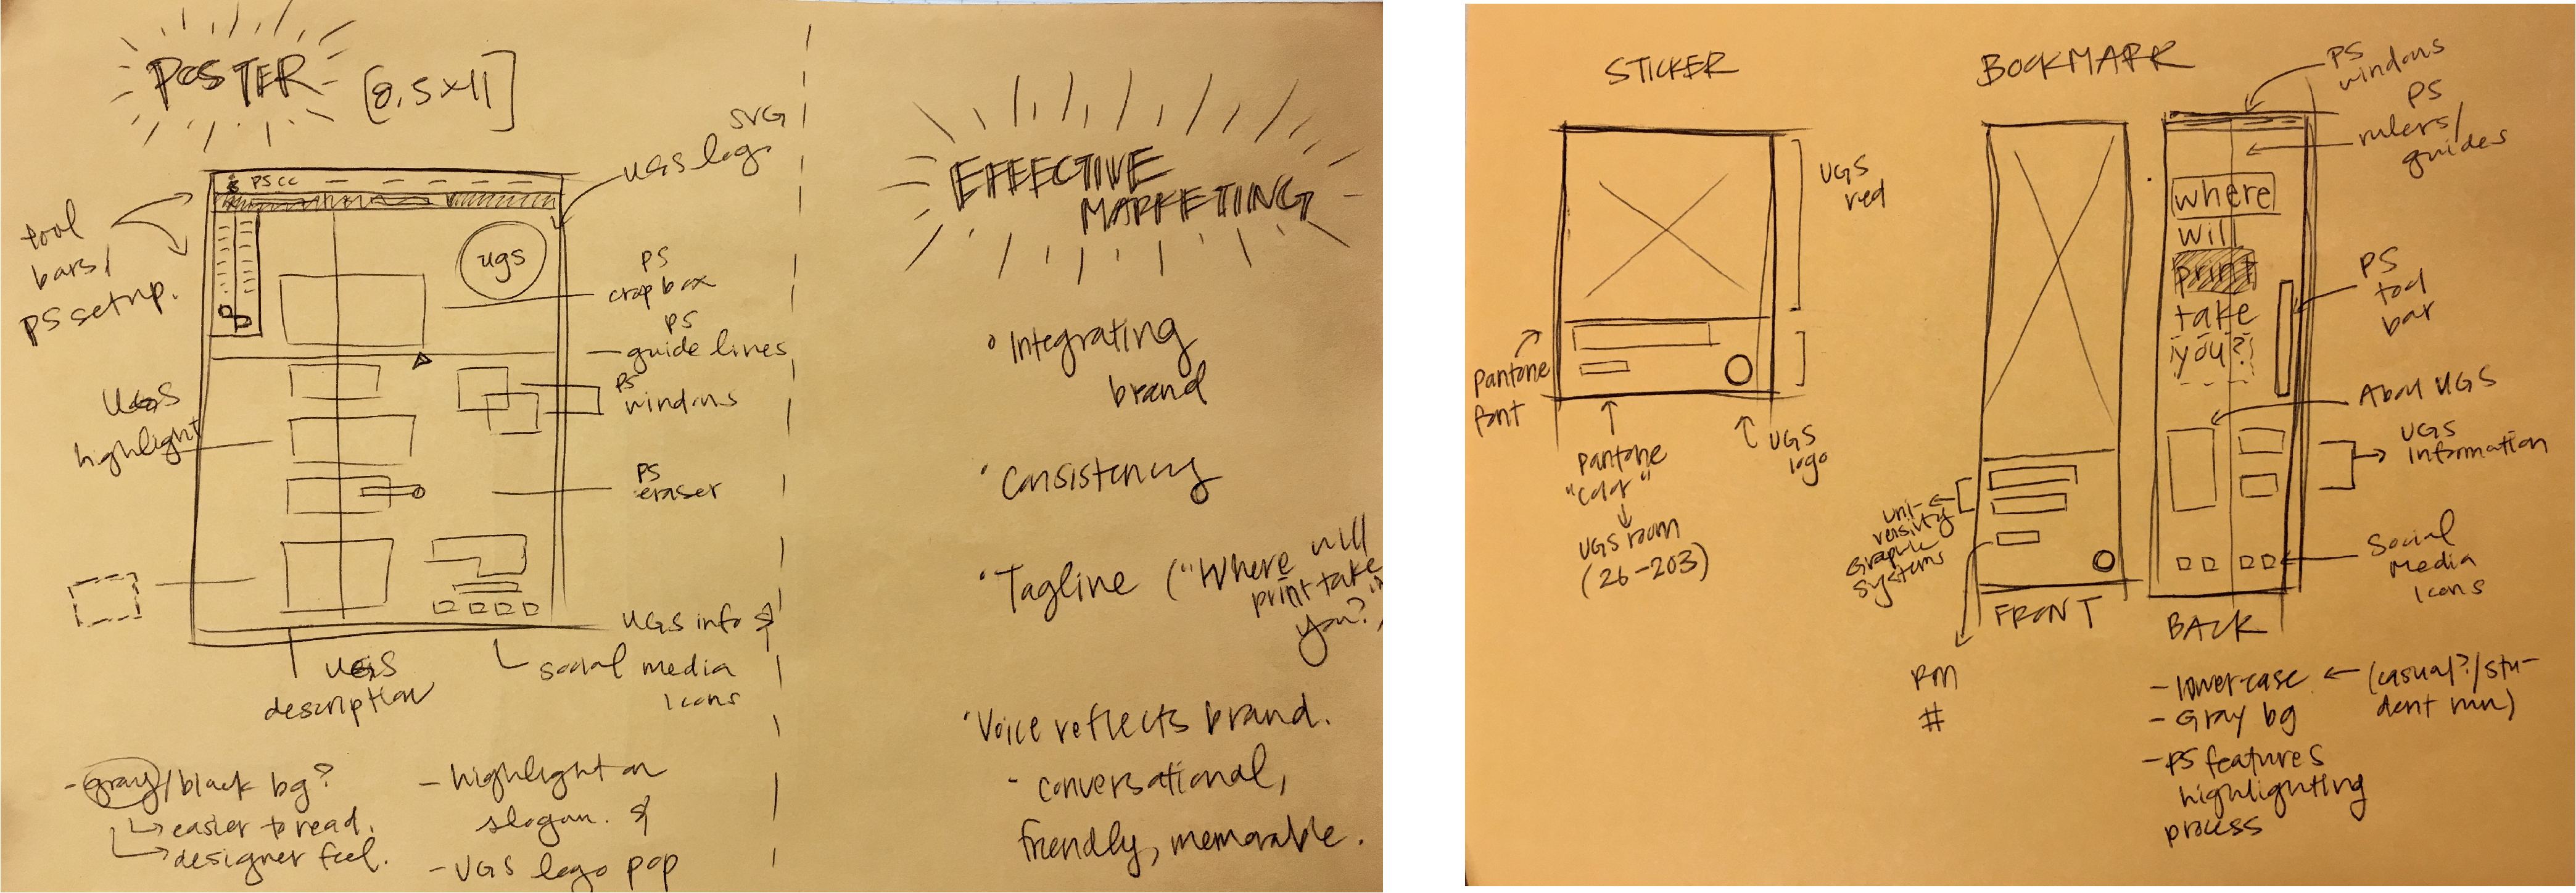 POSTER
[8.5x11]
SVG
UGS logo
PS CC
tool
bars/
PS setup.
ugs
PS
crop box
PS
guide lines
PS
windows
UGS
highlight
PS
eraser
UGS info &
social media
icons
UGS
description
- gray/black bg?
easier to read.
designer feel.
- highlight on
slogan. &
- UGS logo pop
EFFECTIVE
MARKETING
• Integrating
brand
• Consistency
• Tagline ("Where will
print take
you?"
• Voice reflects brand.
- conversational,
friendly, memorable.
STICKER
UGS
red
Pantone
font
Pantone
"color"
UGS room
(26-203)
UGS
logo
BOOKMARK
PS
windows
PS
rulers/
guides
where
will
print
take
you?
PS
tool
bar
About UGS
UGS
Information
Social
Media
Icons
uni-
versity
Graphic
Systems
FRONT
BACK
RM
#
- lowercase ← (casual?/stu-
dent run)
- Gray bg
- PS features
highlighting
process